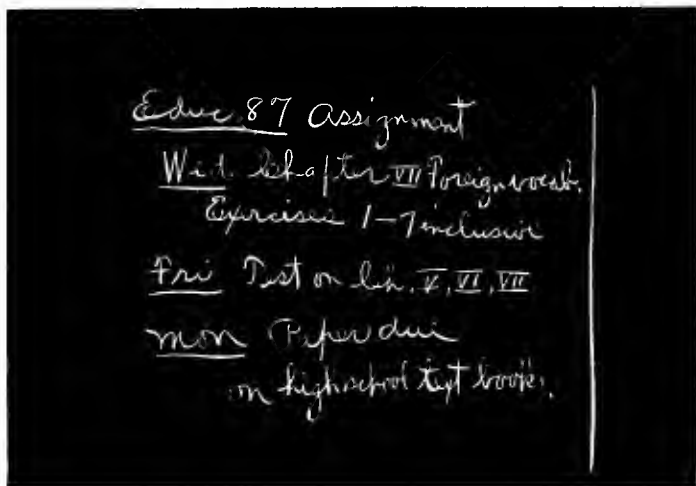 Educ. 87 Assignment
Wed. Chapter VII Foreign vocab.
Exercises 1-7 inclusive
Fri Test on Ch. V, VI, VII
Mon Paper due
on high school text book.